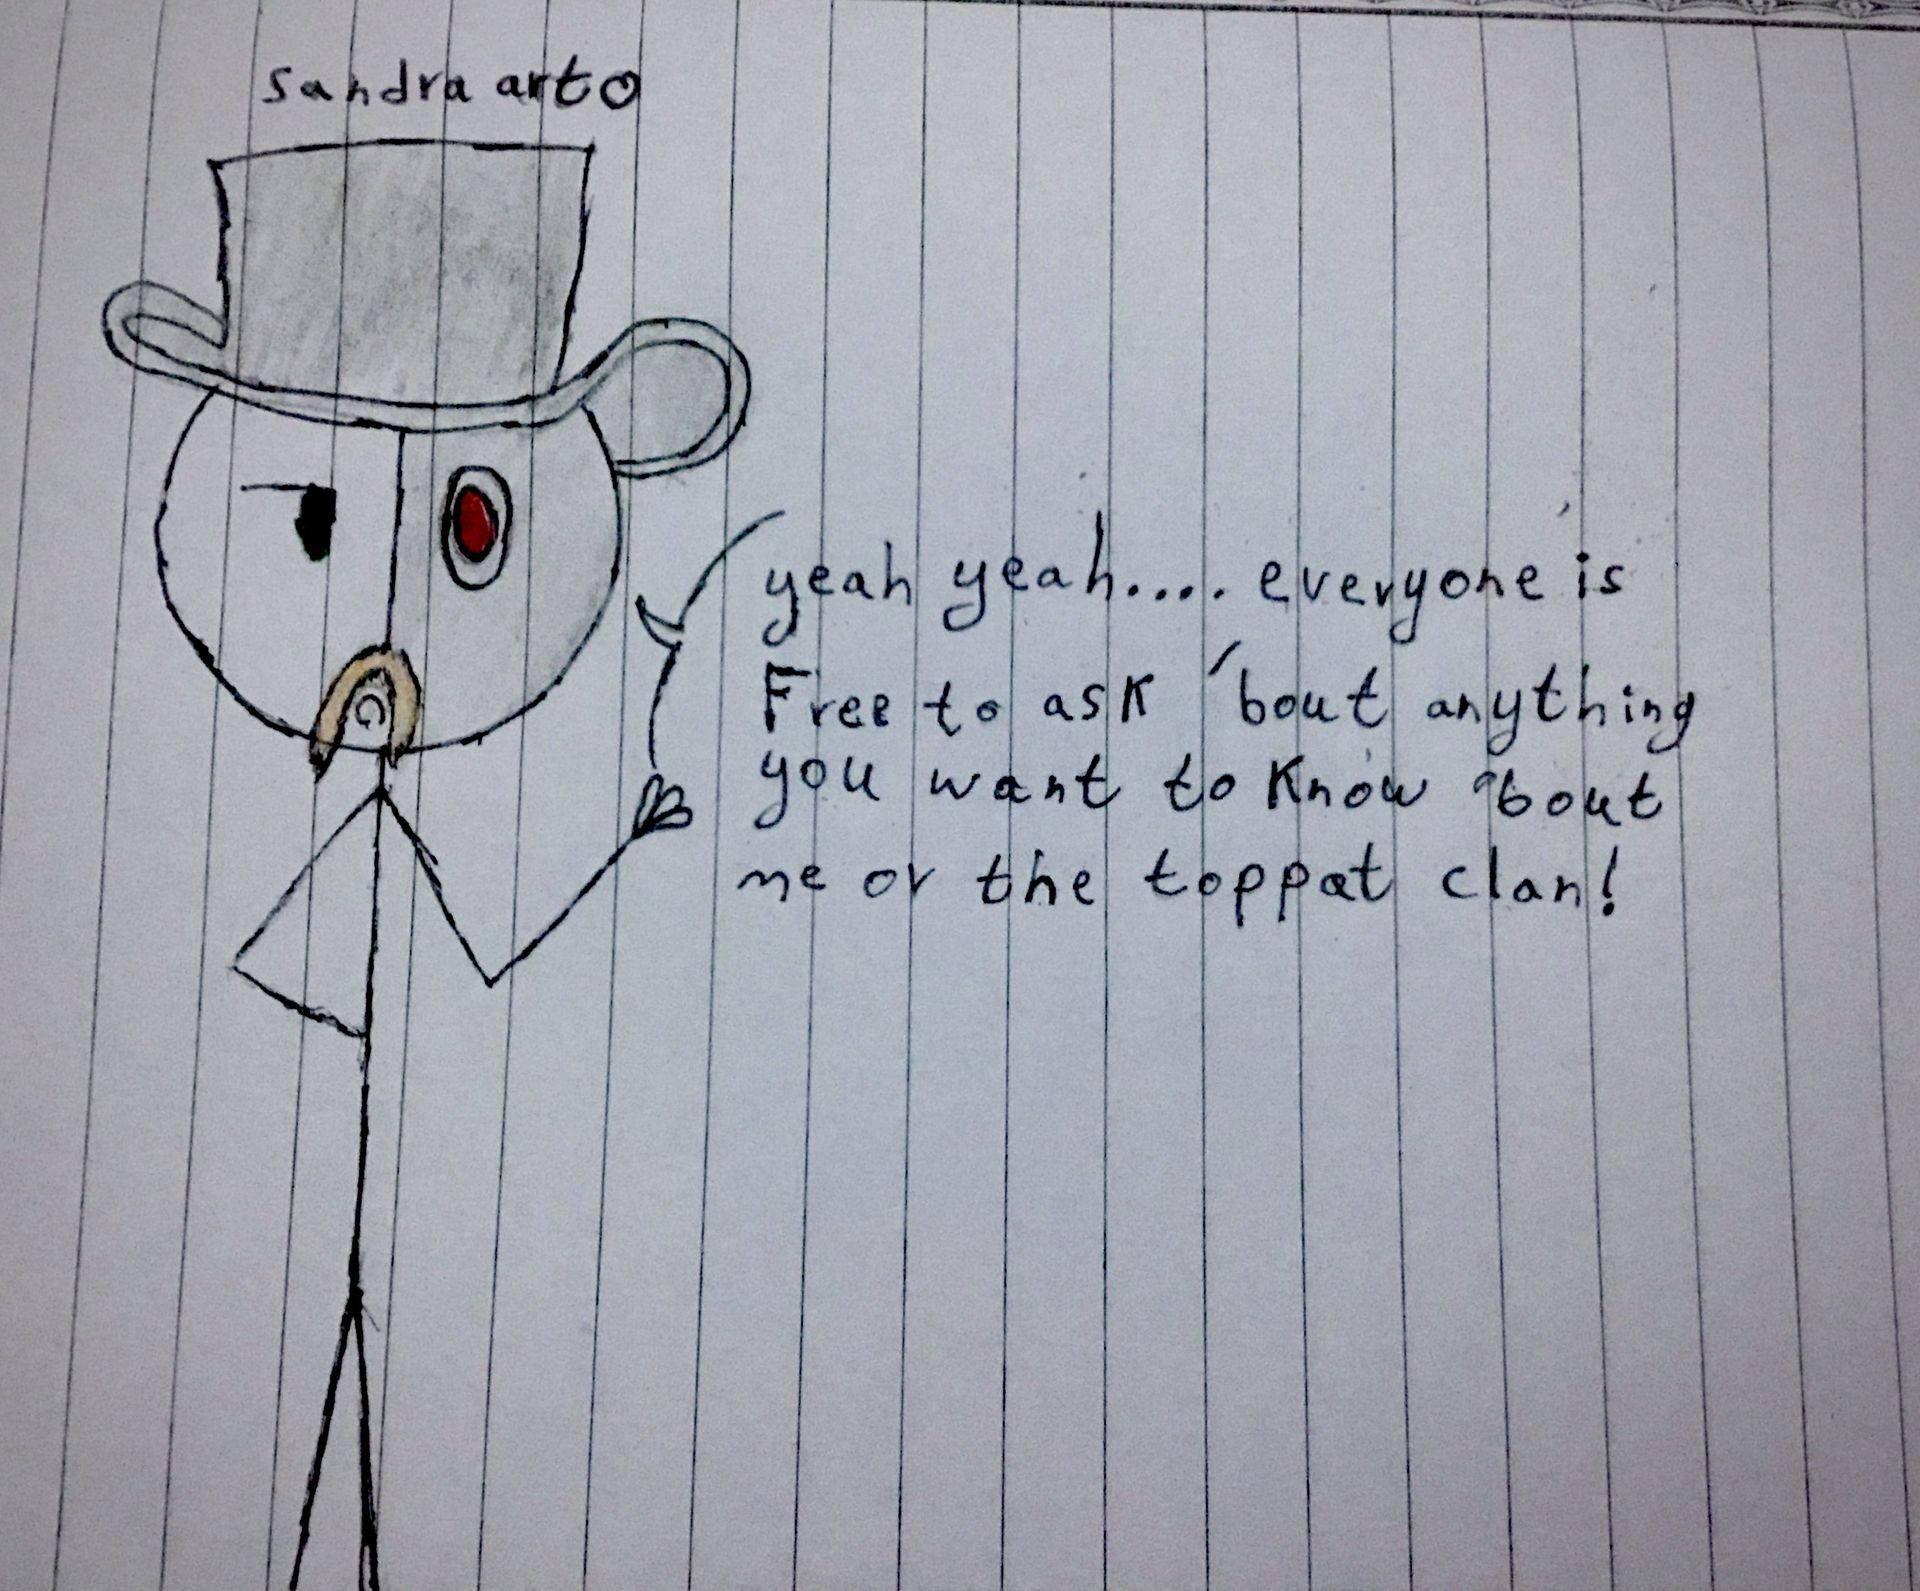 sandra arto
yeah yeah.... everyone is
Free to ask 'bout anything
you want to Know 'bout
me or the toppat clan!